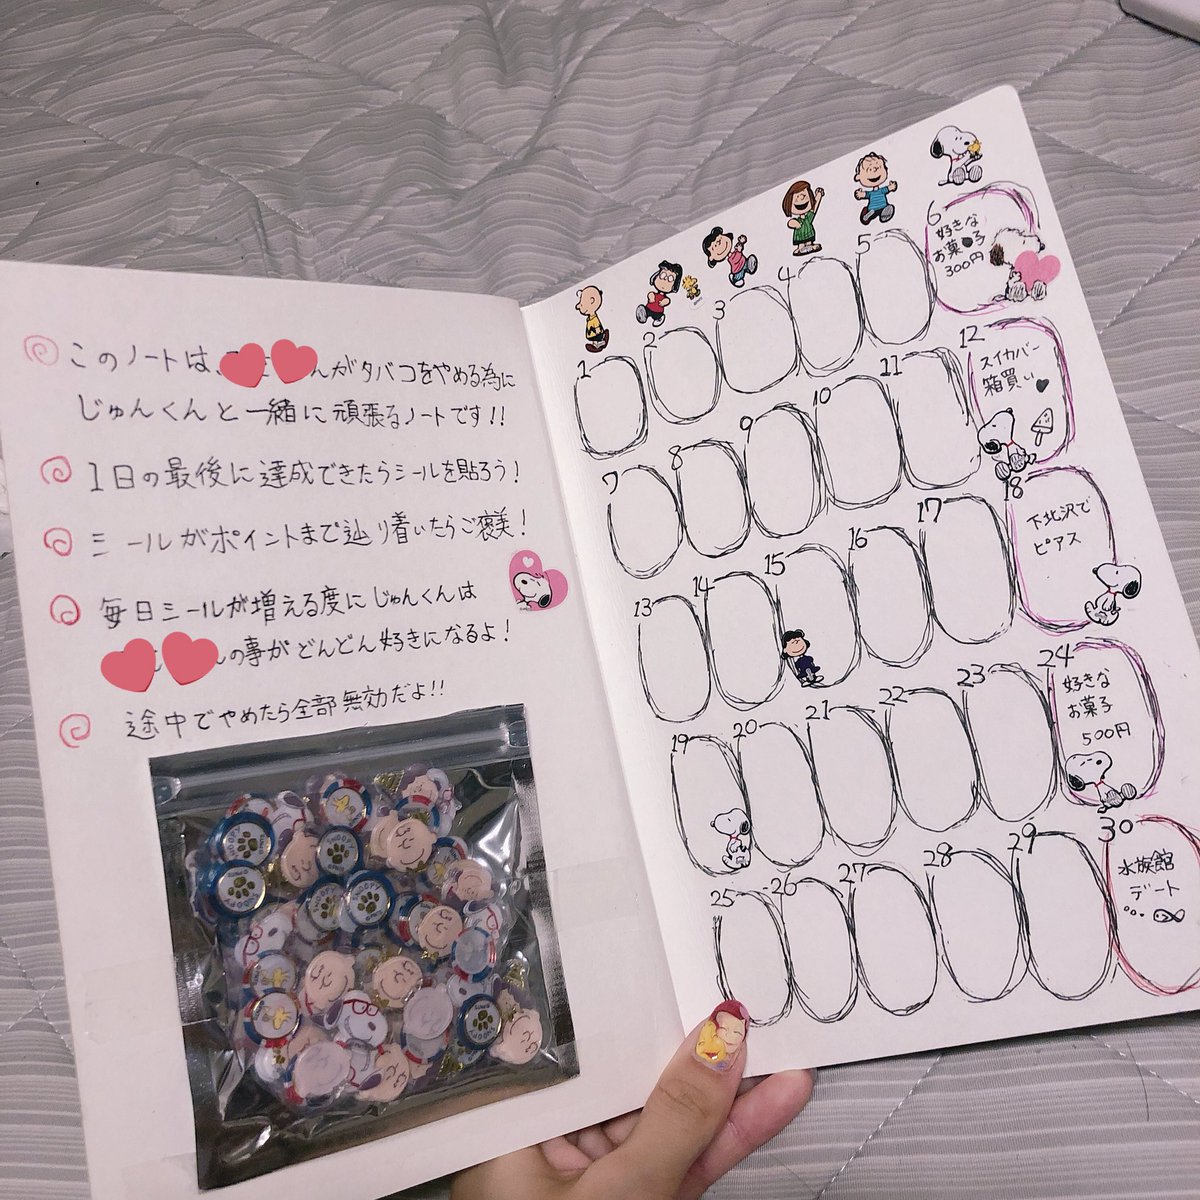 このノートは、んがタバコをやめる為に
じゅんくんと一緒に頑張るノートです!!
1日の最後に達成できたらシールを貼ろう!
シールがポイントまで辿り着いたらご褒美!
毎日シールが増える度にじゅんくんは
んの事がどんどん好きになるよ!
途中でやめたら全部無効だよ!!
1
2
3
4
5
6
好きな
お菓子
300円
7
8
9
10
11
12
スイカバー
箱買い
13
14
15
16
17
18
下北沢で
ピアス
19
20
21
22
23
24
好きな
お菓子
500円
25
26
27
28
29
30
水族館
デート